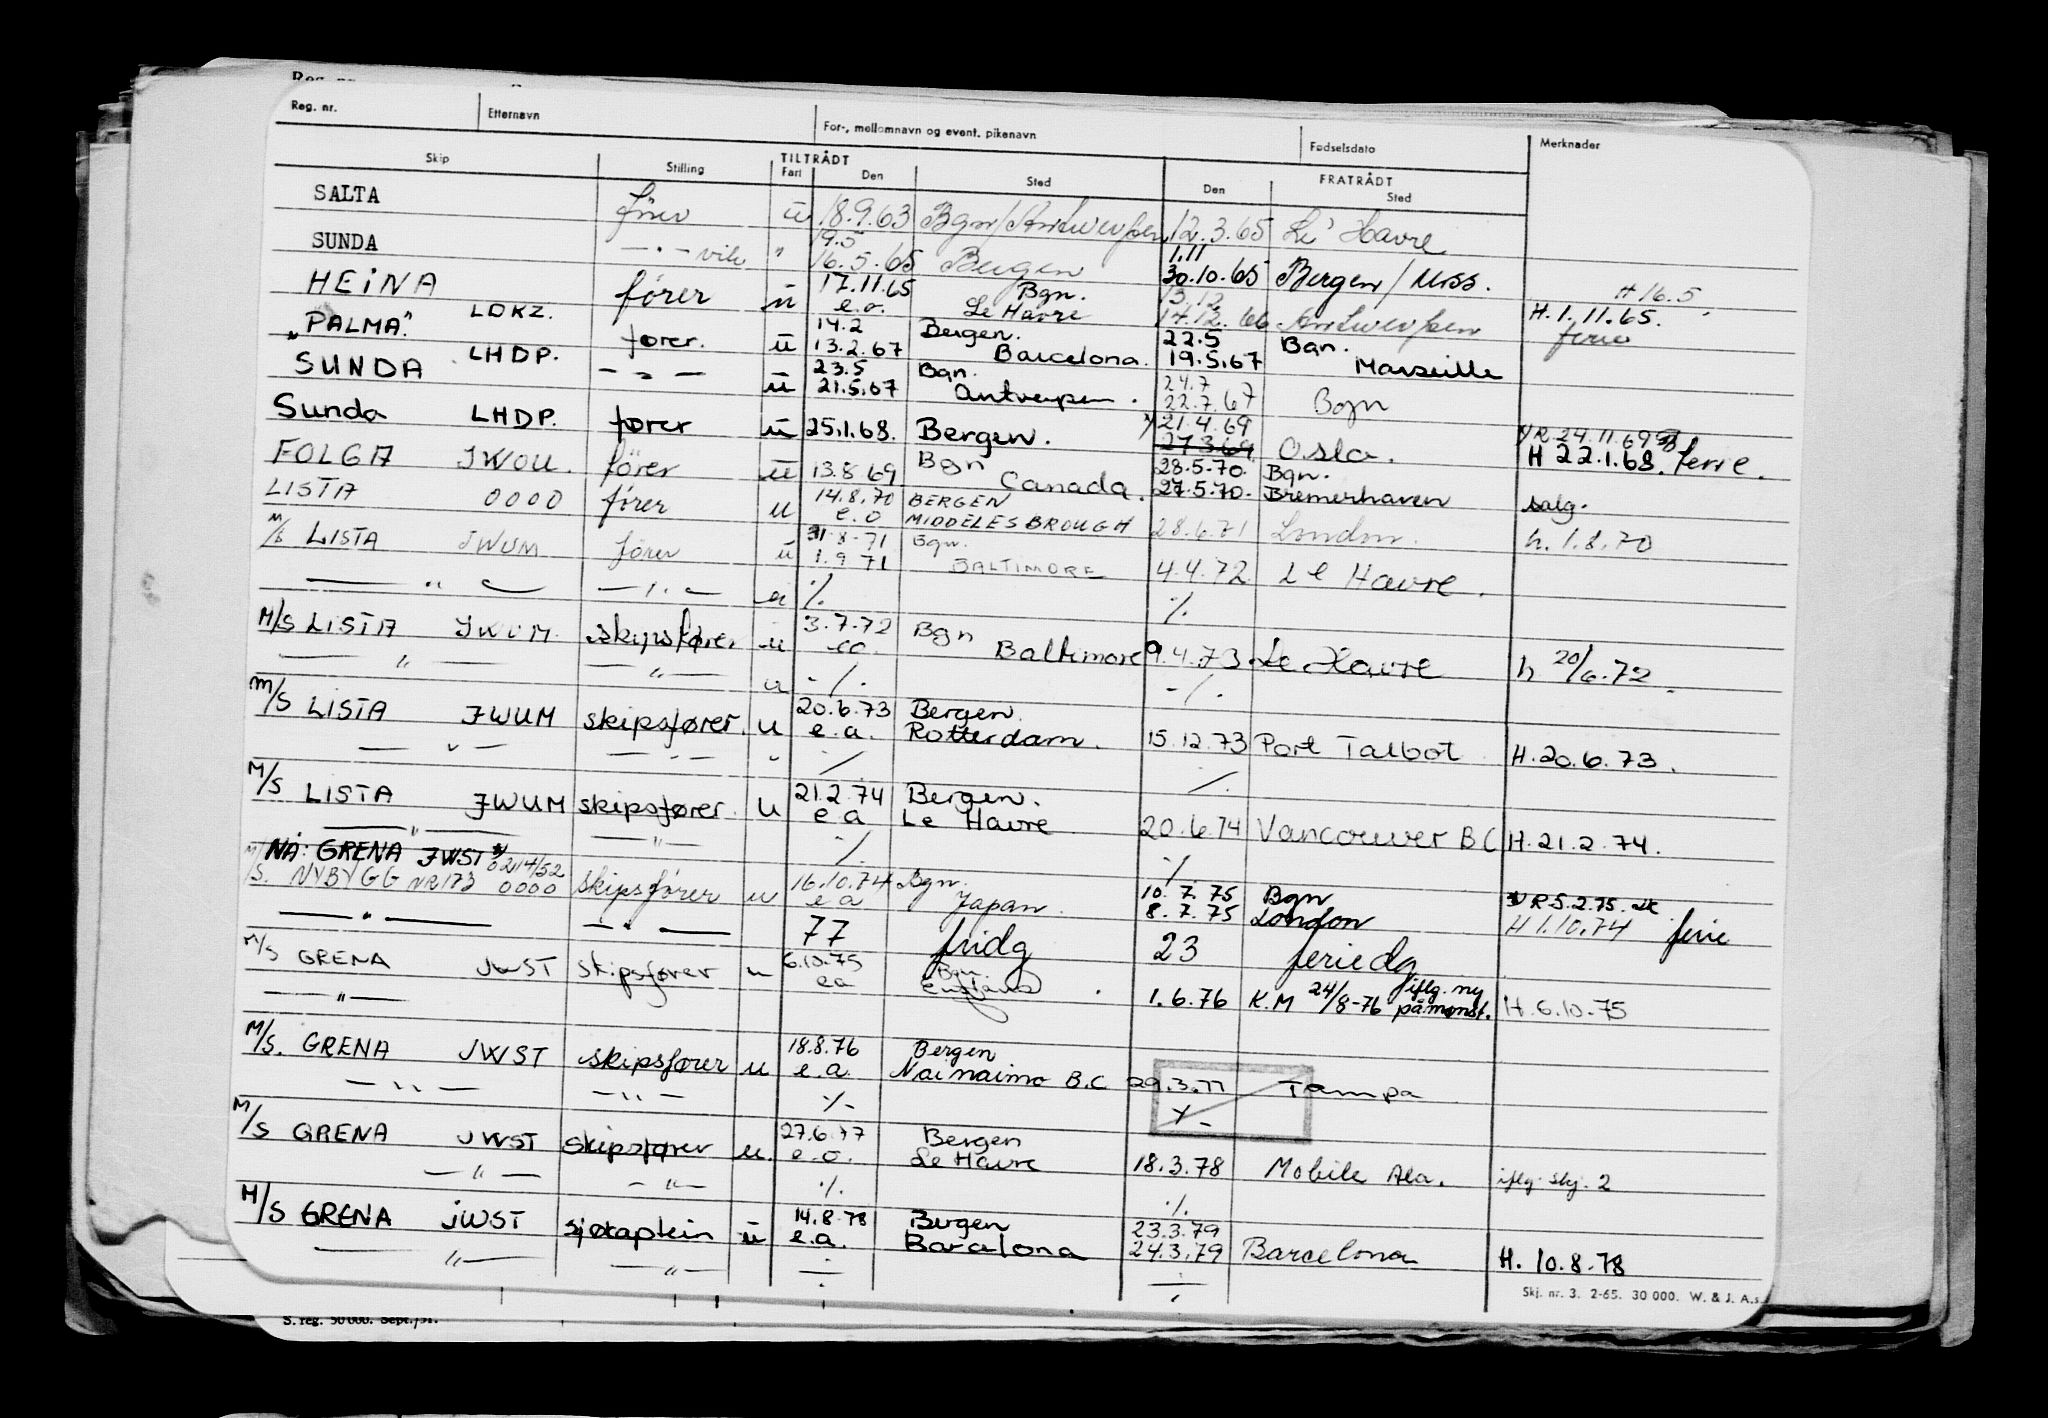 Reg. nr.
Reg. nr. Etternavn For-, mellomnavn og event. pikenavn Fødselsdato Merknader
Skip Stilling TILTRÅDT FRATRÅDT
Fart Den Sted Den Sted
SALTA fører ū 18.9.63 Bgn/Antwerpen 12.3.65 Le Havre
19.5 1.11
SUNDA — " — vik " 16.5.65 Bergen 30.10.65 Bergen / Miss. H 16.5
17.11.65 Bgn. 13.12
HEINA LDKZ. fører ū e.o. Le Havre 14.12.66 Antwerpen H. 1.11.65. ferie
14.2 Bergen. 22.5 Bgn.
"PALMA" LHDP. fører. ū 13.2.67 Barcelona. 19.5.67 Marseille
23.5 Bgn. 24.7
SUNDA — " — ū 21.5.67 Antwerpen. 22.7.67 Bgn
21.4.69 NR 24.11.69
Sunda LHDP. fører ū 25.1.68. Bergen. 27.3.69 Oslo. H 22.1.68. ferie.
Bgn 28.5.70. Bgn.
FOLGA JWOU. fører ū 13.8.69 Canada. 27.5.70. Bremerhaven salg.
14.8.70 BERGEN
LISTA 0000 fører u e.o MIDDELESBROUGH 28.6.71 London. h. 1.8.70
31.8-71 Bgn.
M/S LISTA JWUM fører ū 1.9 71 BALTIMORE 4.4.72 Le Havre.
— " — — " — u ./. ./.
3.7.72 Bgn
M/S LISTA JWUM. skipsfører u eo. Baltimore 9.4.73 Le Havre h 20/6.72
— " — — " — u -/. -/.
20.6.73 Bergen.
M/S LISTA JWUM skipsfører. u e.a. Rotterdam. 15.12.73 Port Talbot H.20.6.73.
— " — — " — " / /
21.2.74 Bergen.
M/S LISTA JWUM skipsfører. u e a Le Havre 20.6.74 Vancouver B C H.21.2.74.
— " — — " — ./. ./.
NÅ: GRENA JWST 0214/52 16.10.74 Bgn. 10.7.75 Bgn NR 5.2.75.
M/S. NYBYGG NR 173 0000 skipsfører u e a Japan. 8.7.75 London H 1.10.74 ferie
— " — — " — 77 fridg 23 feriedg
6.10.75 Bgn. iflg. ny
M/S GRENA JWST skipsfører u ea England. 1.6.76 K.M 24/8-76 påmønst. H.6.10.75
— " —
18.8.76 Bergen
M/S. GRENA JWST skipsfører u e.a. Nainaimo B.C 29.3.77 Tampa
— " — — " — ./- ./-
27.6.77 Bergen
M/S GRENA JWST skipsfører u. e.o. Le Havre 18.3.78 Mobile Ala. iflg. skj. 2
— " — — " — ./. ./.
14.8.78 Bergen 23.3.79
M/S GRENA JWST sjøkaptein ū e.a. Barcelona 24.3.79 Barcelona H. 10.8.78
— " — — " —
Skj. nr. 3. 2-65. 30 000. W. & J. A.s.
S. reg. 50000. Sept./51.